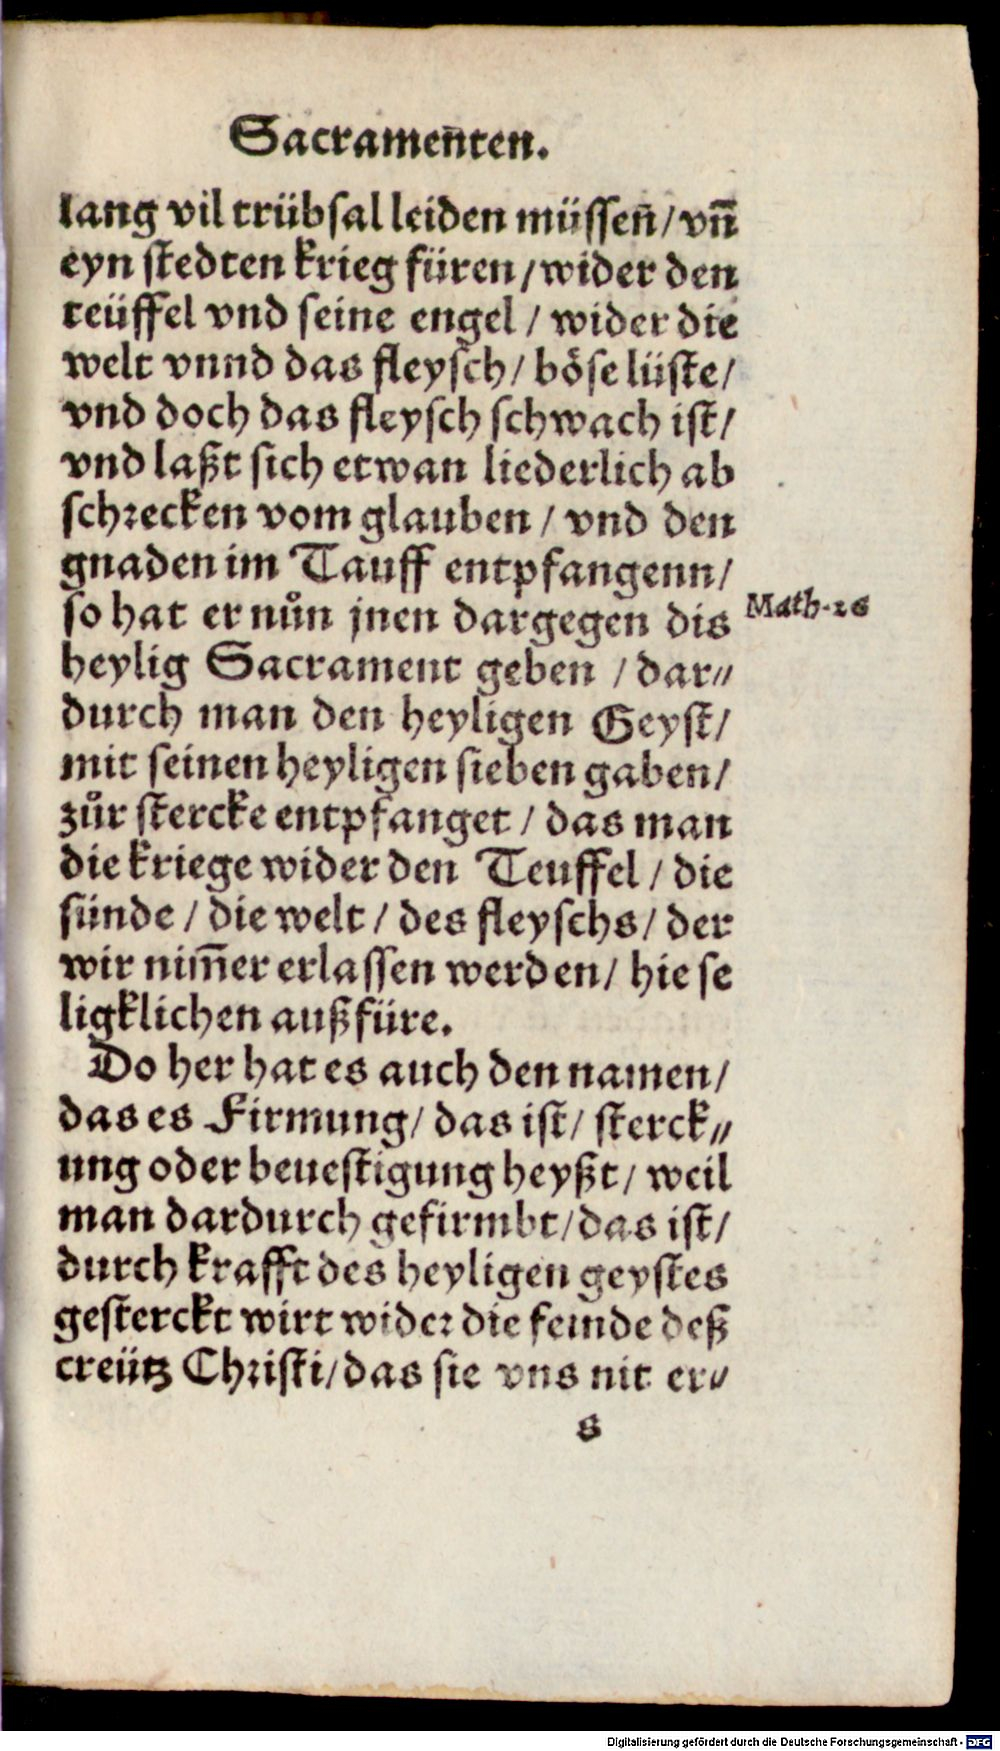 Sacramen̄ten.
lang vil trübsal leiden müssen̄/ vn̄
eyn stedten krieg füren/ wider den
teüffel vnd seine engel / wider die
welt vnnd das fleysch/ böse lüste/
vnd doch das fleysch schwach ist/
vnd laßt sich etwan liederlich ab
schrecken vom glauben / vnd den
gnaden im Tauff entpfangenn/
so hat er nůn jnen dargegen dis
Math. 26
heylig Sacrament geben / dar⸗
durch man den heyligen Geyst/
mit seinen heyligen sieben gaben/
zůr stercke entpfanget / das man
die kriege wider den Teuffel / die
sünde / die welt / des fleyschs/ der
wir nim̄er erlassen werden/ hie se
ligklichen außfüre.
Do her hat es auch den namen/
das es Firmung/ das ist/ sterck⸗
ung oder beuestigung heyßt/ weil
man dardurch gefirmbt/ das ist/
durch krafft des heyligen geystes
gesterckt wirt wider die feinde deß
creütz Christi/ das sie vns nit er⸗
s
Digitalisierung gefördert durch die Deutsche Forschungsgemeinschaft - DFG